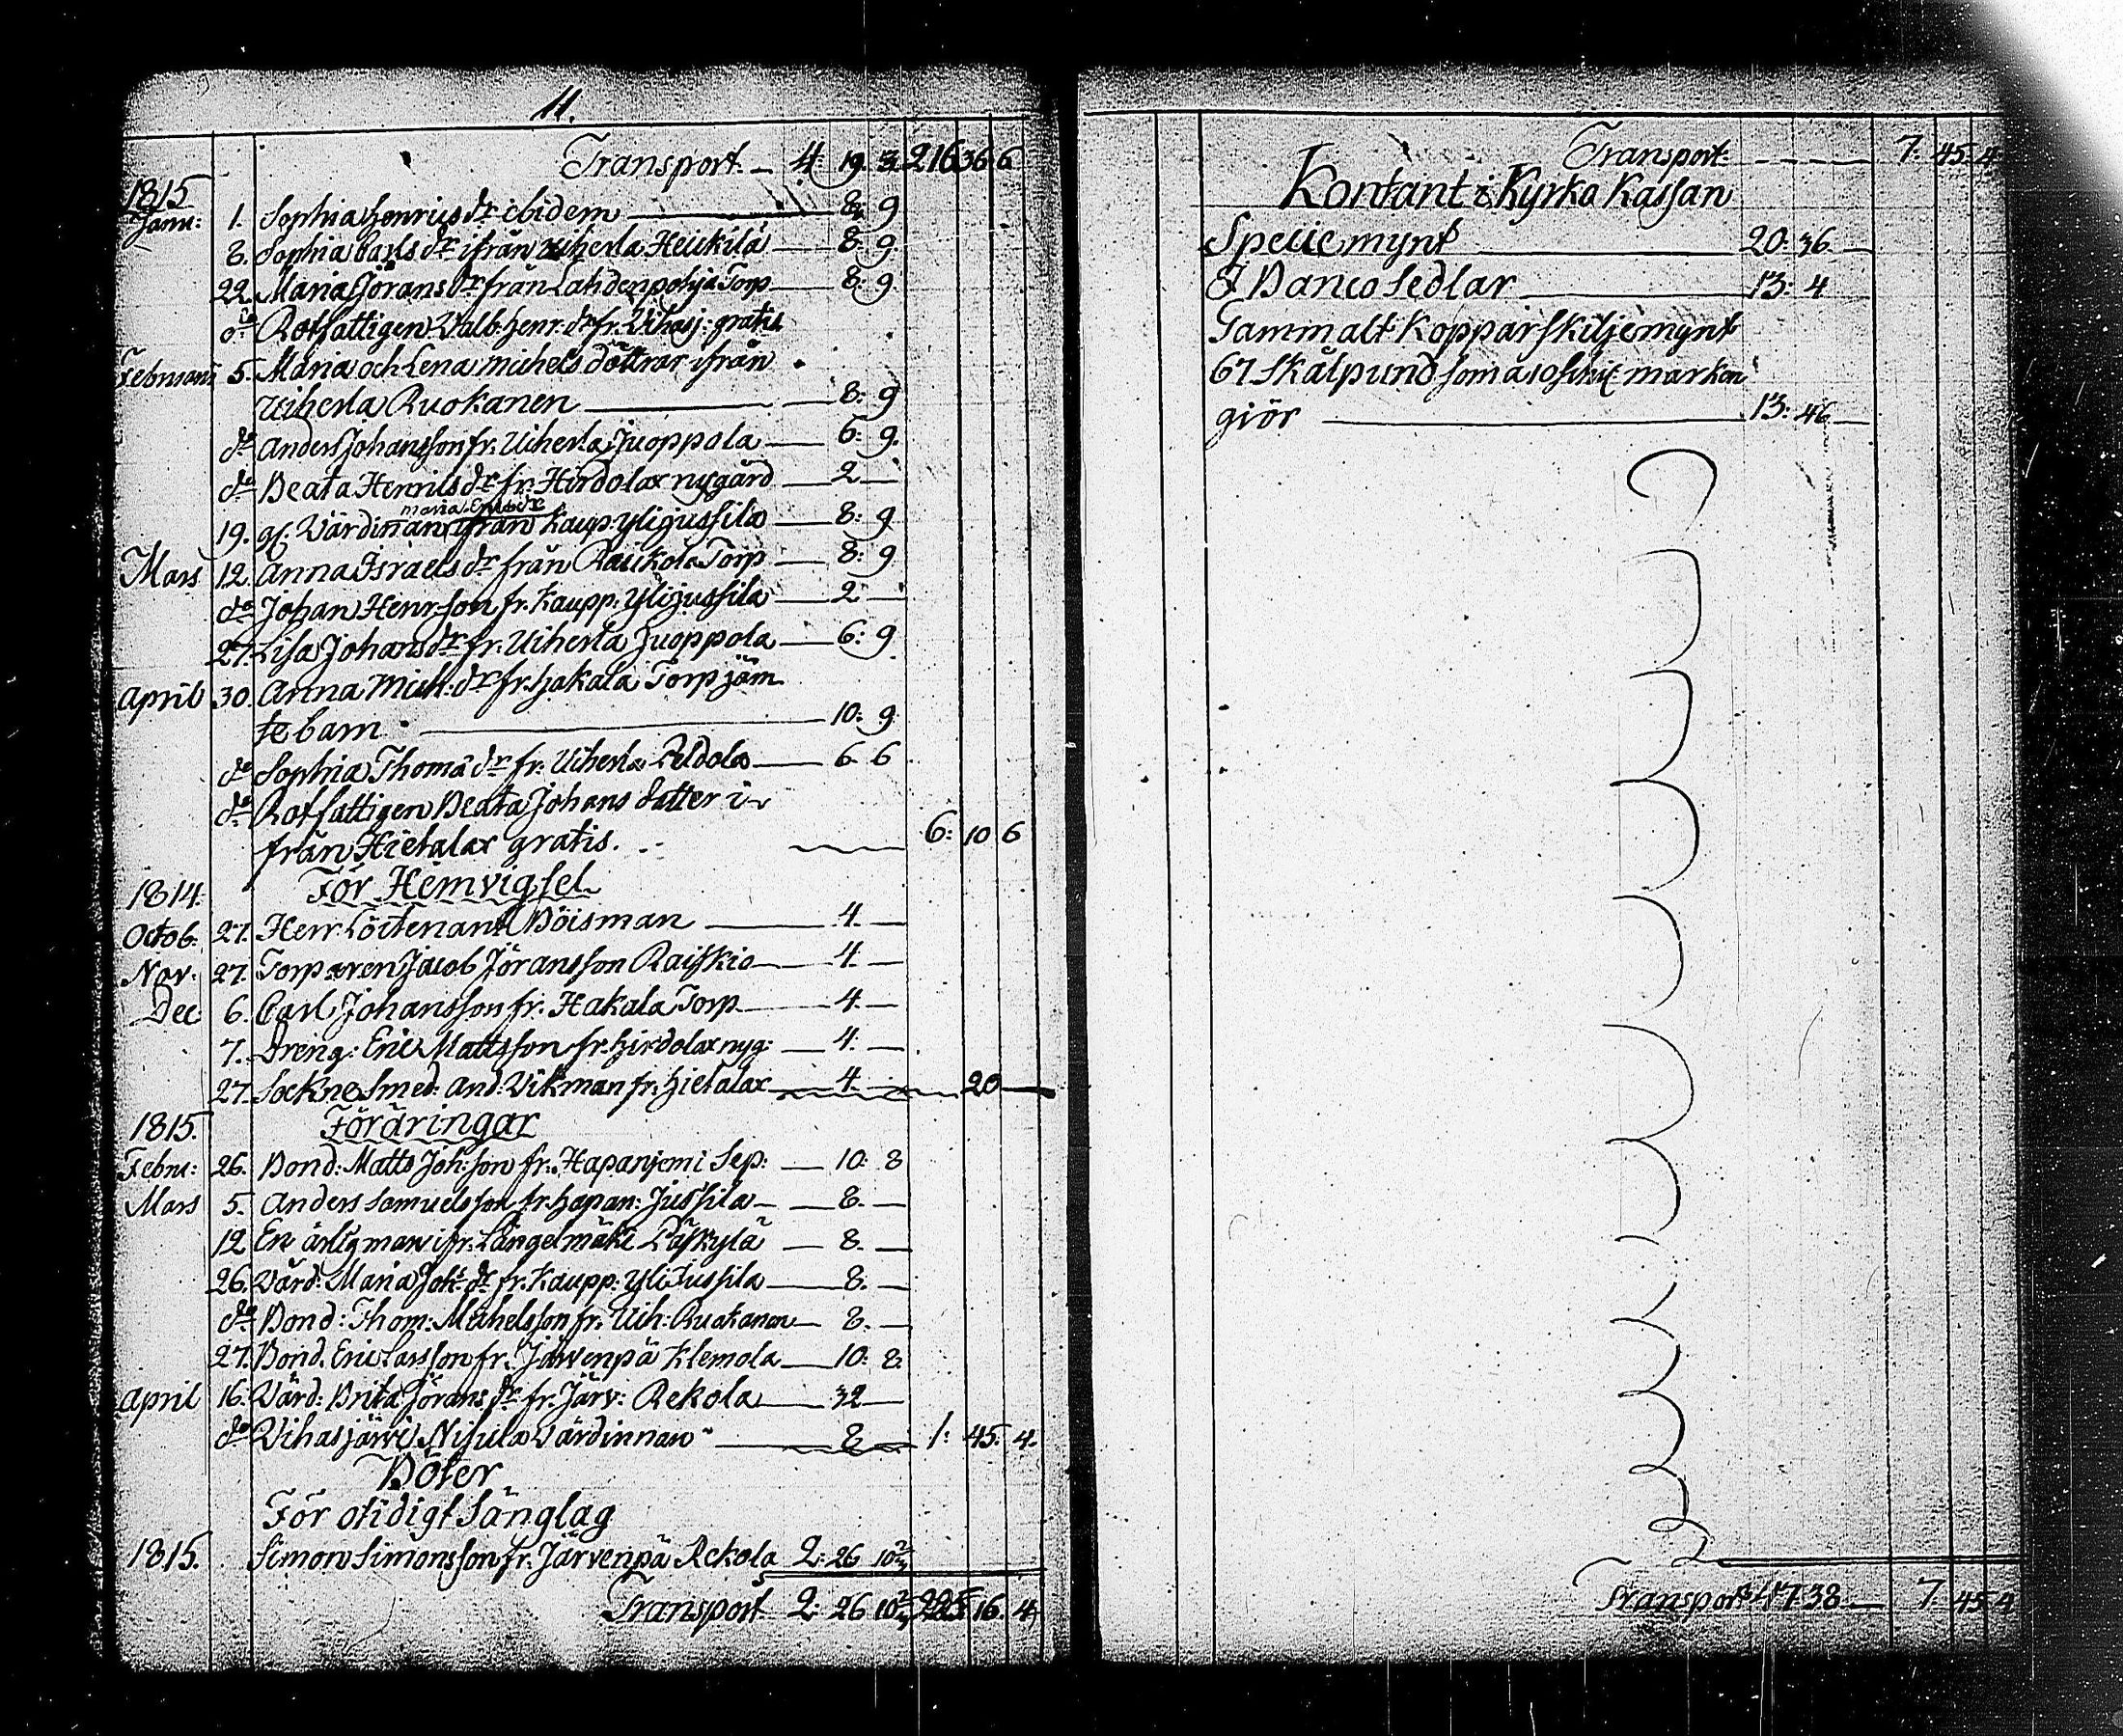 11.
Transport. 4. 19. 3. 216 36 6
1815
Janu: 1. Sophia Henrics dr ibidem 8: 9
8. Sophia Carls dr ifrån Uiherla Heickilä 8: 9.
22. Maria Jörans dr från Lahdenpohja Torp 8: 9
do Rotfattigen Walb. Henr. dr fr. Vihasj: gratis
Februarii 5. Maria och Lena Michels döttrar ifrån
Uiherla Ruokanen 8: 9
do Anders Johansson fr. Uiherla Juoppola 6: 9.
do Beata Henrics dr fr. Hirdolax nygård 2
19. gl. Värdinnan ifrån Kaup: Ylijussila 8: 9
Mars 12. Anna Israels dr från Raukola Torp 8: 9
do Johan Henr.son fr. Kaupp: Ylijussila 2
27. Lisa Johans dr fr. Uiherla Juoppola 6: 9
April 30. Anna Mich: dr fr. Hakala Torp jäm
te barn 10: 9
do Sophia Thomæ dr fr. Uiherla Peldola 6 6
do Rotfattigen Beata Johans datter i
från Hietalax gratis. 6: 10 6
1814. För Hemvigsel
Octob: 27. Herr Löitenant Böisman 4.
Nov: 27. Torparen Jacob Jöransson Raiskio 4.
Dec 6. Carl Johansson fr. Hakala Torp 4.
7. Dreng: Eric Mattsson fr. Hirdolax nyg: 4.
27. Sockne Smed. And: Vikman fr. Hietalax 4. 20
1815. Föräringar
Febru: 26. Bond: Matts Joh:son fr. Hapanjemi Sep: 10: 8
Mars 5. Anders Samuelsson fr. Hapan: Jussila 8.
12 En ärlig man ifr. Längelmäki Päskylä 8.
26. Värd: Maria Joh: dr fr. Kaupp: Yli Jussila 8.
do Bond: Thom: Michelsson fr. Uih: Ruokanen 8.
27. Bond. Eric Larsson fr. Järvenpä Klemola 10: 8.
April 16. Värd: Brita Jörans dr fr. Järv: Rekola 32
do Vihasjärvi Nisula värdinnan 8 1: 45. 4.
Böter
För otidigt Sänglag
1815. Simon Simonsson fr. Järvenpä Rekola 2: 26 10⅔
Transport 2: 26 10⅔ 225 16. 4
Transport. 7. 45. 4
Kontant i Kyrko Kassan
Specie mynt 20: 36
I Banco Sedlar 13: 4
Gammalt Koppar skiljemynt
67 Skålpund som a 10 skill: marken
giör 13: 46
Transport 47 38 7. 45 4